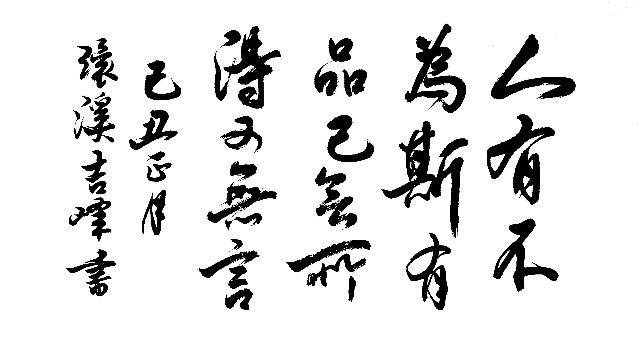 人有不
為斯有
品己無所
得又無言
己丑正月
環溪吉峰書